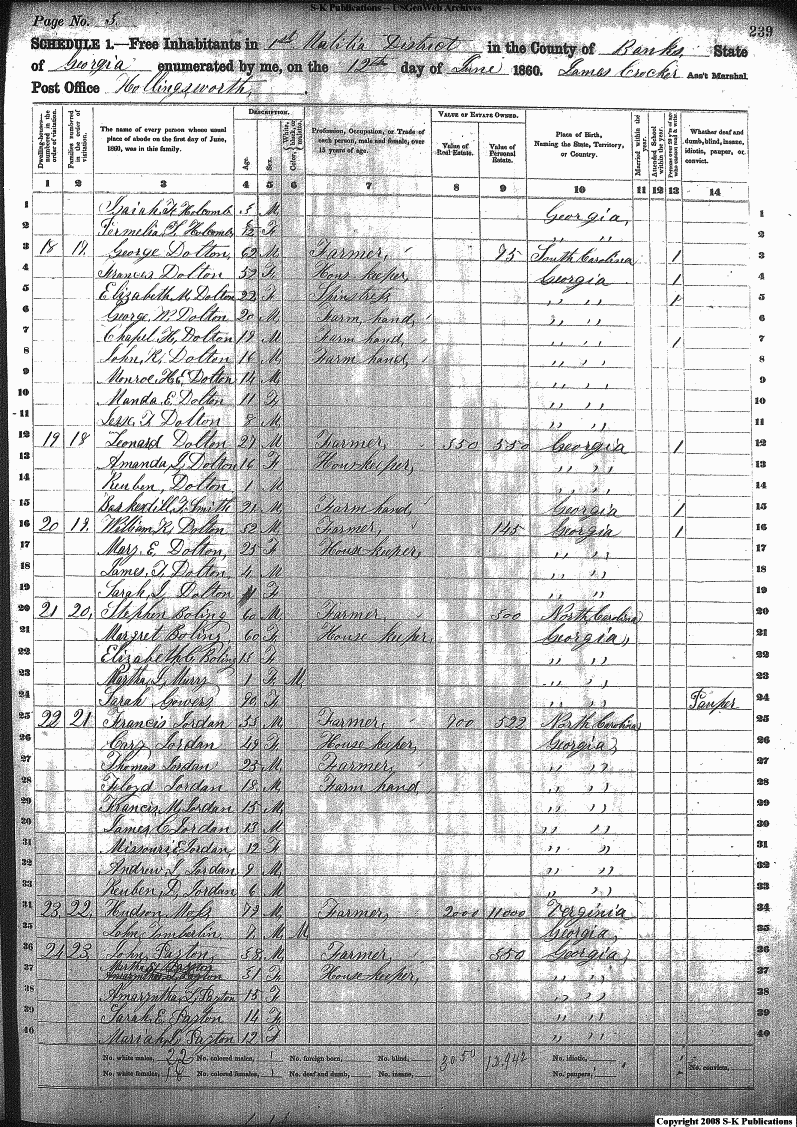 S-K Publications -- USGenWeb Archives
Page No. 5.
239
SCHEDULE 1.—Free Inhabitants in 1st Malitia District in the County of Banks State
of Georgia enumerated by me, on the 12th day of June 1860. James Crocker Ass't Marshal.
Post Office Hollingsworth,
Dwelling-houses— numbered in the order of visitation.
Families numbered in the order of visitation.
The name of every person whose usual place of abode on the first day of June, 1860, was in this family.
DESCRIPTION.
Age.
Sex.
Color, White, black, or mulatto.
Profession, Occupation, or Trade of each person, male and female, over 15 years of age.
VALUE OF ESTATE OWNED.
Value of Real Estate.
Value of Personal Estate.
Place of Birth, Naming the State, Territory, or Country.
Married within the year.
Attended School within the year.
Persons over 20 y'rs of age who cannot read & write.
Whether deaf and dumb, blind, insane, idiotic, pauper, or convict.
1 2 3 4 5 6 7 8 9 10 11 12 13 14
1 Isaiah H. Holcomb 5 M Georgia, 1
2 Permelia F. Holcomb F " " 2
3 18 17. George Dolton, 62 M Farmer, 95 South Carolina 1 3
4 Frances Dolton 52 F Hous keeper, Georgia 1 4
5 Elizabeth M. Dolton 22 F Spinstress " " 1 5
6 George W. Dolton 20 M Farm hand, " " 6
7 Chapel H. Dolton 19 M Farm hand, " " 1 7
8 John R. Dolton 16 M Farm hand, " " 8
9 Monroe H.E. Dolton 14 M " " 9
10 Manda E. Dolton 11 F " " 10
11 Jesse F. Dolton 8 M " " 11
12 19 18 Leonard Dolton 27 M Farmer, 550 550 Georgia 1 12
13 Amanda J. Dolton 16 F Hous-keeper, " " 13
14 Reuben, Dolton 1 M " " 14
15 Baskedill F. Smith 21 M Farm hand, Georgia 1 15
16 20 19. William R. Dolton 52 M Farmer, 145 Georgia 1 16
17 Mary E. Dolton, 25 F House keeper, " " 17
18 James. F. Dolton, 4 M " " 18
19 Sarah J. Dolton F " " 19
20 21 20, Stephen Boling 60 M Farmer 500 North Carolina 20
21 Margret Boling 60 F House keeper, Georgia, 21
22 Elizabeth C. Boling 15 F " " 22
23 Martha J. 1 F M " " 23
24 Sarah Gowers 90 F " " Pauper 24
25 22 21 Francis Jordan 55 M Farmer, 900 522 North Carolina 25
26 Jordan 49 F House keeper, Georgia, 26
27 Thomas Jordan 23 M Farmer, " " 27
28 Floyd Jordan 18 M Farm hand " " 28
29 Francis M. Jordan 15 M " " 29
30 James C. Jordan 13 M " " 30
31 Missouri E. Jordan, 12 F " " 31
32 Andrew J. Jordan 9 M " " 32
33 Reuben D. Jordan 6 M " " 33
34 23. 22. Hudson Moss 79 M Farmer, 2000 11000 Verginia 34
35 John, Tomberlin M M Georgia, 35
36 24 23. John, Paxton, 58 M Farmer, 550 Georgia, 36
37 Martha Paxton 51 F House keeper, " " 37
38 Amarintha L. Paxton 15 F " " 38
39 Sarah E. Paxton 14 F " " 39
40 Mariah J. Paxton 12 F " " 40
No. white males, 22 No. colored males, 1 No. foreign born, No. blind, 3050 12.942 No. idiotic,
No. white females, 18 No. colored females, 1 No. deaf and dumb, No. insane, No. paupers, 1 No. convict,
Copyright 2008 S-K Publications